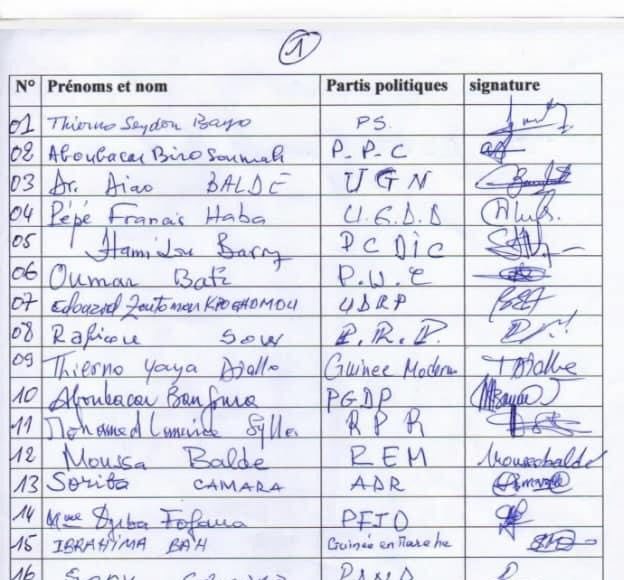 1
N° Prénoms et nom Partis politiques signature
01 Thierno Seydou Bayo PS.
02 Aboubacar Biro Soumah P.P.C
03 Dr. BALDE UGN
04 Pépé Francis Haba U.G.D.D
05 Hamidou Barry PC DIC
06 Oumar P.U.C
07 Edouard Zoutomou KPOGHOMOU UDRP
08 Rafiou SOW P.R.P.
09 Thierno Yaya Diallo Guinee Moderne TDiallo
10 Aboubacar Bangoura PGDP
11 Mohamed Lamine Sylla RPR
12 Moussa Balde REM Moussabalde
13 Soriba CAMARA ADR
14 Mme Fofana
15 IBRAHIMA BAH Guinée en Marche
16